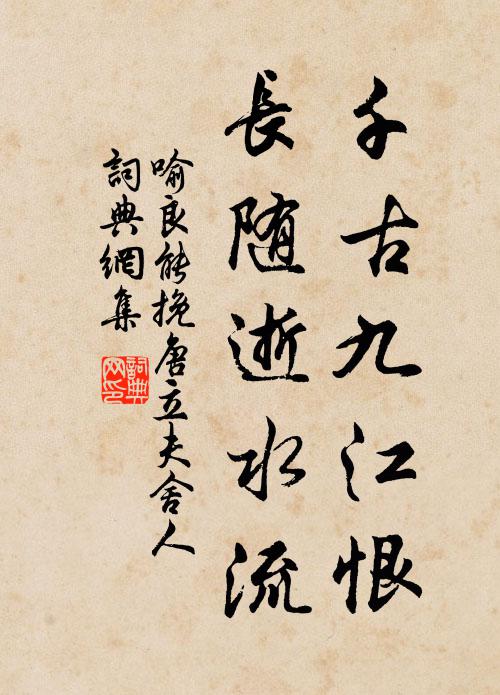 千古九江恨
長随逝水流
喻良能挽唐立夫舍人
詞典網集
詞典
网印